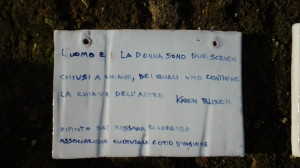 L'UOMO E LA DONNA SONO DUE SCRIGNI
CHIUSI A CHIAVE, DEI QUALI UNO CONTIENE
LA CHIAVE DELL'ALTRO KAREN BLIXEN
DIPINTO DA: ROSSANA
ASSOCIAZIONE CULTURALE